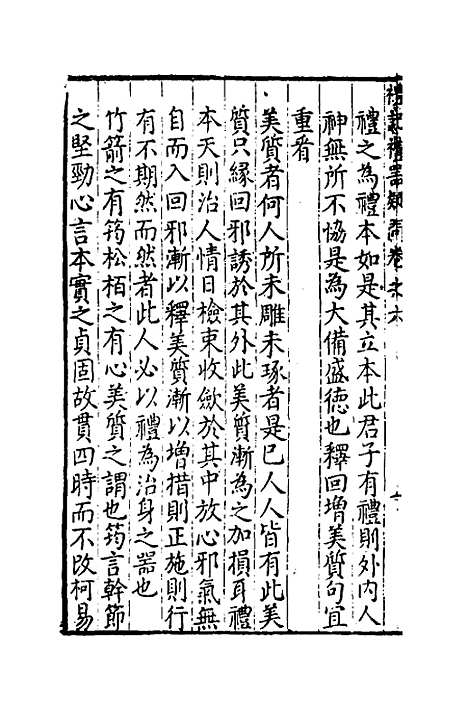 禮之為禮本如是其立本此君子有禮則外内人
神無所不恊是為大備盛德也釋回增美質句宜
重看
美質者何人所未雕未琢者是已人人皆有此美
質只緣回邪誘於其外此美質漸為之加損耳禮
本天則治人情日檢束收歛於其中放心邪氣無
自而入回邪漸以釋美質漸以增措則正施則行
有不期然而然者此人必以禮為治身之噐也
竹箭之有筠松栢之有心美質之謂也筠言幹節
之堅勁心言本實之貞固故貫四時而不改柯易